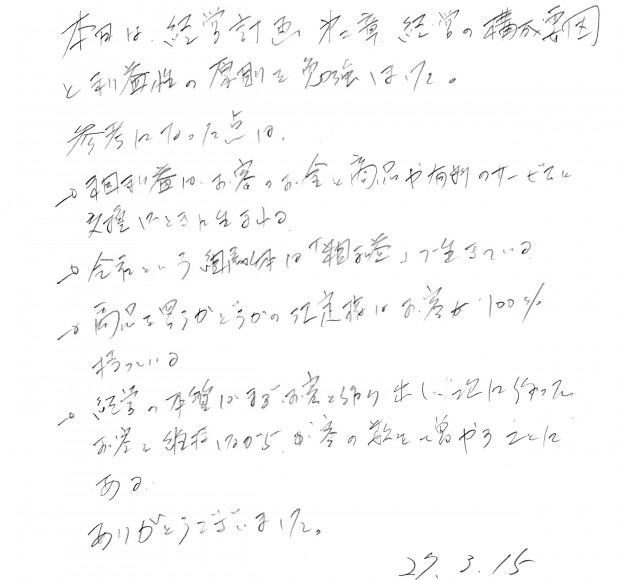 本日は、経営計画 第二章 経営の構成要因
と利益性の原則を勉強しました。
参考になった点は、
→粗利益は、お客のお金と商品や有料のサービスに
交換したときに生まれる
→会社という組織体は「粗利益」で生きている
→商品を買うかどうかの決定権はお客が100%
持っている
→経営の本質はまずお客を作り出し、次に作った
お客を維持しながら、お客の数を増やすことに
ある。
ありがとうございました。
27.3.15